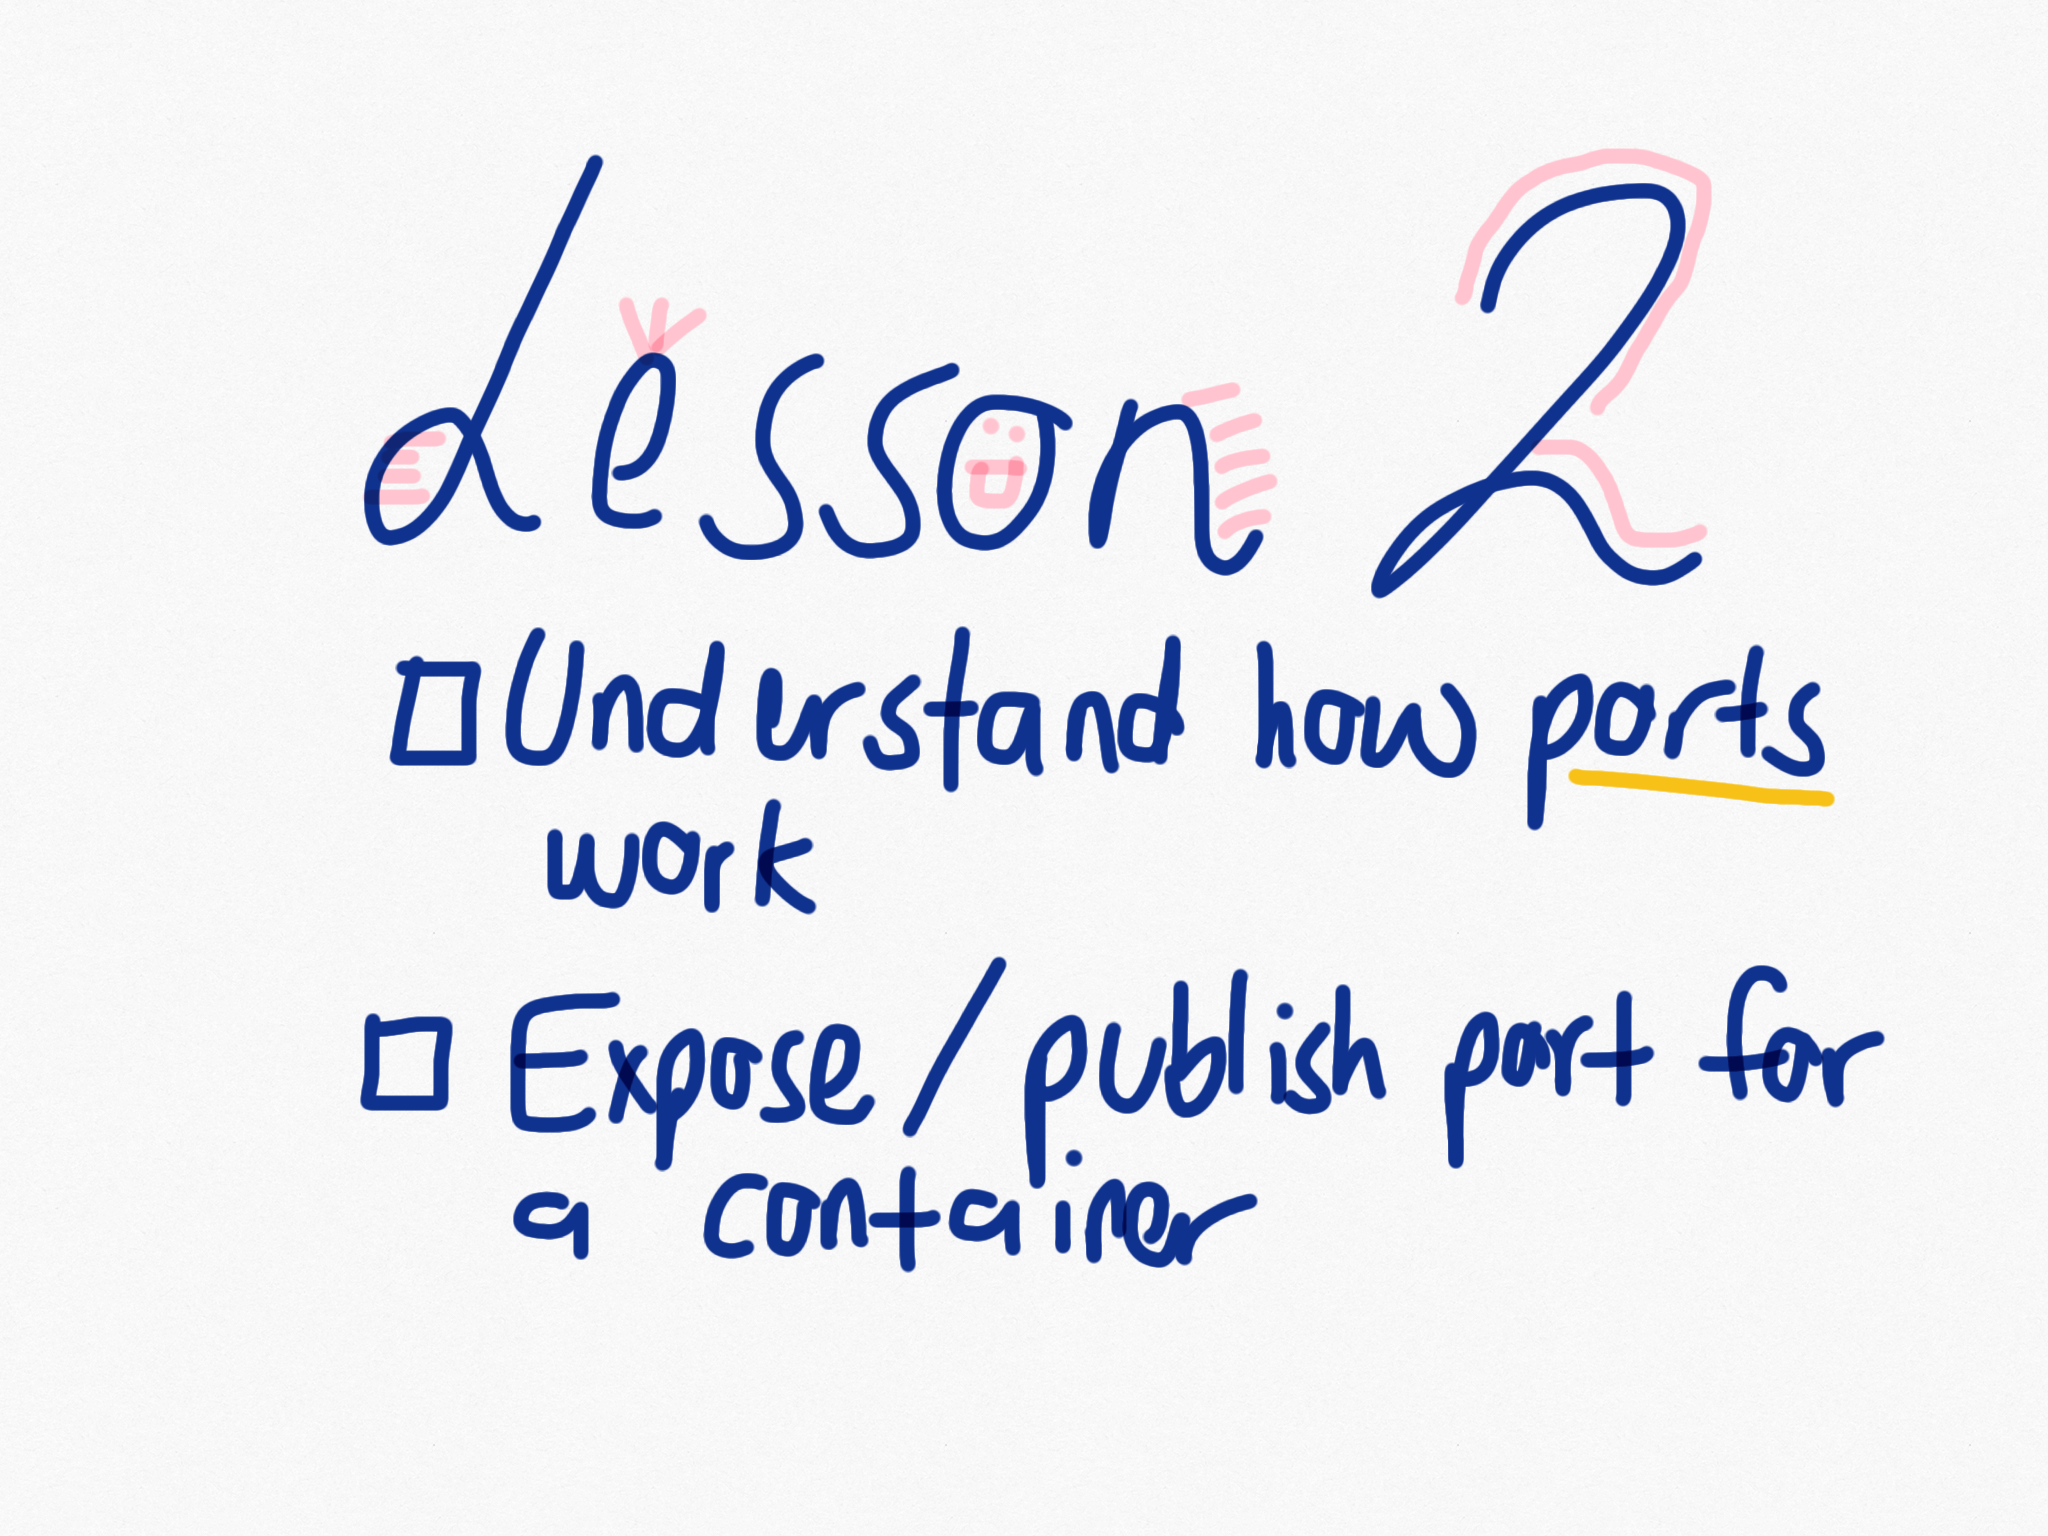 Lesson 2
Understand how ports
work
Expose / publish port for
a container